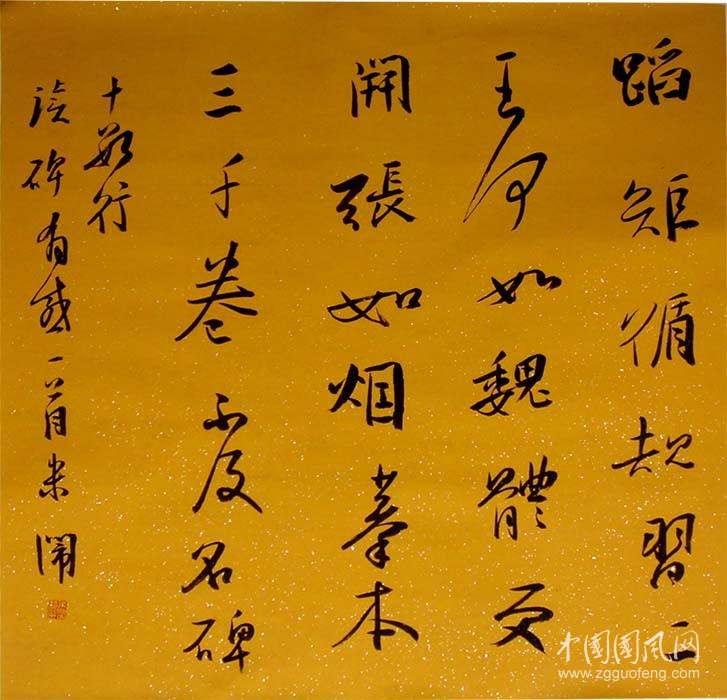 蹈矩循規習二
王何如魏體更
開張如烟摹本
三千卷不及名碑
十數行
读碑有感一首米闹
中国国风网
www.zgguofeng.com